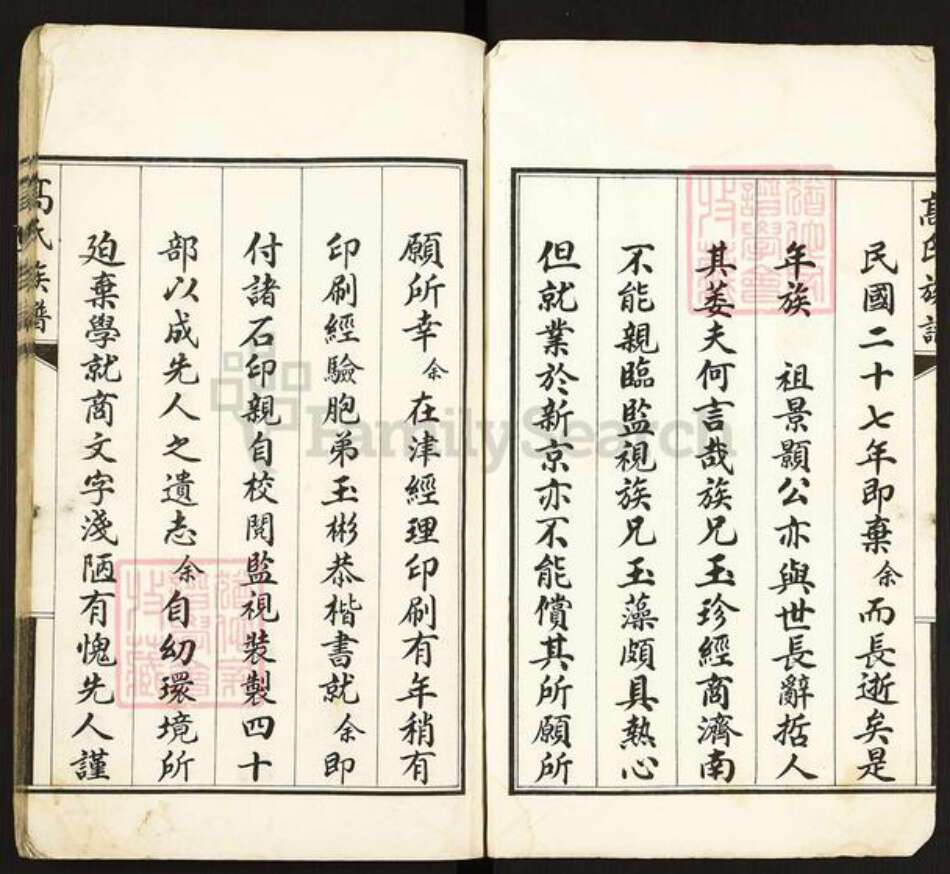 民國二十七年即棄余而長逝矣是
年族 祖景顥公亦與世長辭哲人
其萎夫何言哉族兄玉珍經商濟南
不能親臨監視族兄玉藻頗具熱心
但就業於新京亦不能償其所願所
願所幸余在津經理印刷有年稍有
印刷經驗胞弟玉彬恭楷書就余即
付諸石印親自校閱監視裝製四十
部以成先人之遺志余自幼環境所
迫棄學就商文字淺陋有愧先人謹
高氏族譜
高氏族譜
FamilySearch